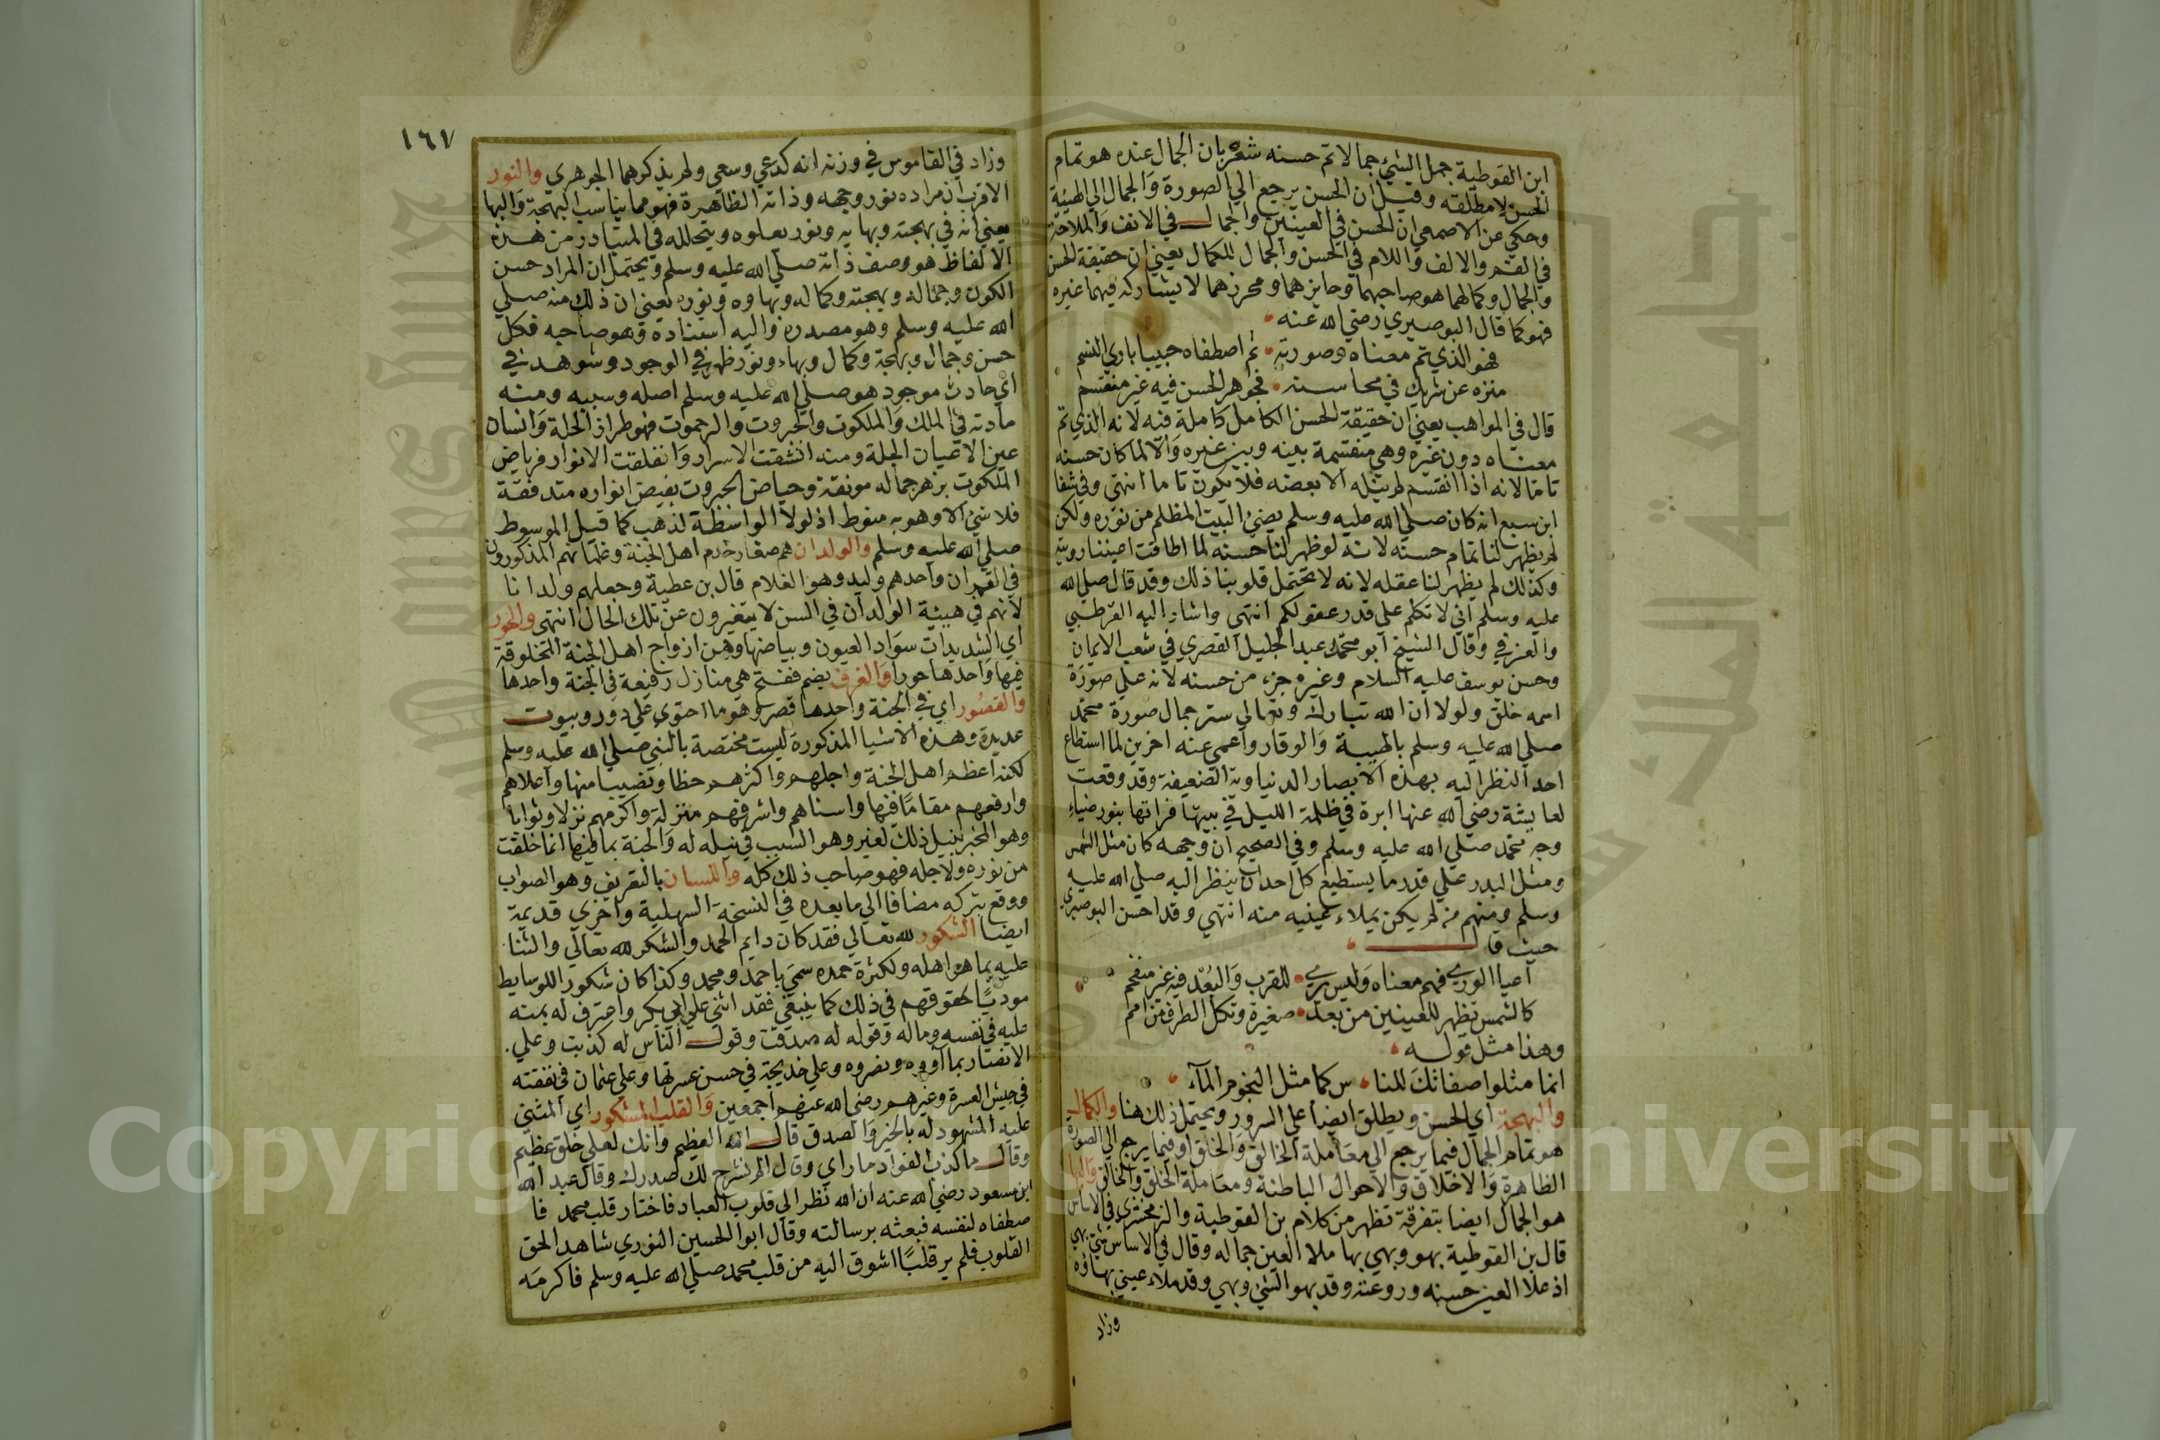 ابن القوطية جمل الشئ جمالا تم حسنه شعر بان الجمال عنده هو تمام
الحسن لا مطلقه وقيل ان الحسن يرجع الي الصورة والجمال الي الهيئة
وحكي عن الاصمعي ان الحسن في العينين والجمال في الانف والملاحة
في الفم والالف واللام في الحسن والجمال للكمال يعني ان حقيقة الحسن
والجمال وكمالهما هو صاحبهما وحايزهما ومحرزهما لا يشاركه فيهما غيره
فهو كما قال البوصيري رضي الله عنه
فهو الذي تم معناه وصورته ثم اصطفاه حبيبا باري النسم
منزه عن شريك في محاسنه فجوهر الحسن فيه غير منقسم
قال في المواهب يعني ان حقيقة الحسن الكامل كاملة فيه لانه الذي تم
معناه دون غيره وهي منقسمة بينه وبين غيره والا لما كان حسنه
تاما لانه اذا انقسم لم ينله الا بعضه فلا يكون تاما انتهي وفي شفا
ابن سبع انه كان صلي الله عليه وسلم يضئ البيت المظلم من نوره ولكن
لم يظهر لنا تمام حسنه لانه لو ظهر لنا حسنه لما اطاقت اعيننا رويته
وكذلك لم يظهر لنا عقله لانه لا تحتمل قلوبنا ذلك وقد قال صلي الله
عليه وسلم اني لا تكلم علي قدر عقولكم انتهي واشار اليه القرطبي
والعزفي وقال الشيخ ابو محمد عبد الجليل القصري في شعب الايمان
وحسن يوسف عليه السلام وغيره جزء من حسنه لانه علي صورة
اسمه خلق ولولا ان الله تبارك وتعالي ستر جمال صورة محمد
صلي الله عليه وسلم بالهيبة والوقار واعمي عنه اخرين لما استطاع
احد النظر اليه بهذه الابصار الدنياوية الضعيفة وقد وقعت
لعايشة رضي الله عنها ابرة في ظلمة الليل في بيتها فراتها بنور ضياء
وجه محمد صلي الله عليه وسلم وفي الصحيح ان وجهه كان مثل الشمس
ومثل البدر علي قدر ما يستطيع كل احد ان ينظر اليه صلي الله عليه
وسلم ومنهم من لم يكن يملاء عينيه منه انتهي وقد احسن البوصيري
حيث قال
اعيا الوري فهم معناه وليس يري للقرب والبعد فيه غير منفحم
كالشمس تظهر للعينين من بعد صغيرة وتكل الطرف من امم
وهذا مثل قوله
انما مثلوا صفاتك للنا س كما مثل النجوم المآء
والبهجة اي الحسن ويطلق ايضا علي السرور ويحتمل ذلك هنا والكمال
هو تمام الجمال فيما يرجع الي معاملة الخالق والخلق او فيما يرجع الي الصورة
الظاهرة والاخلاق والاحوال الباطنة ومعاملة الخلق والخالق والبها
هو الجمال ايضا بتفرقة تظهر من كلام بن القوطية والزمخشري في الاساس
قال بن القوطية بهو وبهي بها ملا العين جماله وقال في الاساس شئ بهي
اذ علا العين حسنه وروعته وقد بهو الشئ وبهي وقد ملاء عيني بهاؤه
وزاد
١٦٧
وزاد في القاموس في وزنه انه كدعي وسعي ولم يذكرهما الجوهري والنور
الاقرب ان مراده نور وجهه وذاته الظاهرة فهو مما يناسب البهجة والبها
يعني انه في بهجته وبهايه ونور يعلوه ويتحلله في المتبادر من هذه
الالفاظ هو وصف ذاته صلي الله عليه وسلم ويحتمل ان المراد حسن
الكون وجماله وبهجته وكماله وبهاوه ونوره يعني ان ذلك منه صلي
الله عليه وسلم وهو مصدره واليه استناده وهو صاحبه فكل
حسن وجمال وبهجة وكمال وبهاء ونور ظهر في الوجود وشوهد في
اي حادث موجود هو صلي الله عليه وسلم اصله وسببه ومنه
مادته في الملك والملكوت والجبروت والرحموت فهو طراز الحلة وانسان
عين الاعيان الجلة ومنه انشقت الاسرار وانفلقت الانوار فرياض
الملكوت بزهر جماله مونقة وحياض الجبروت بفيض انواره متدفقة
فلا شئ الا وهو به منوط اذ لولا الواسطة لذهب كما قيل الموسوط
صلي الله عليه وسلم والولدان هم صغار خدم اهل الجنة وغلمانهم المذكورون
في القران واحدهم وليد وهو الغلام قال بن عطية وجعلهم ولدانا
لانهم في هيئة الولدان في السن لا يتغيرون عن تلك الحال انتهي والحور
اي الشديدات سواد العيون وبياضها وهن ازواج اهل الجنة المخلوقة
فيها واحدها حورا والغرف بضم ففتح هي منازل رفيعة في الجنة واحدها
والقصور اي في الجنة واحدها قصر وهو ما احتوي علي دور وبيوت
عديدة وهذه الاشيا المذكورة ليست مختصة بالنبي صلي الله عليه وسلم
لكنه اعظم اهل الجنة واجلهم واكثرهم حظا ونصيبا منها واعلاهم
وارفعهم مقاما فيها واسناهم واشرفهم منزلة واكرمهم نزلا وثوابا
وهو المخبر بنيل ذلك لغيره وهو السبب في نيله له والجنة بما فيها انما خلقت
من نوره ولاجله فهو صاحب ذلك كله واللسان بالتعريف وهو الصواب
ووقع بتركه مضافا الي ما بعده في النسخة السهلية واخري قديمة
ايضا الشكور لله تعالي فقد كان دايم الحمد والشكر لله تعالي والثنا
عليه بما هو اهله ولكثرة حمده سمي باحمد ومحمد وكذا كان شكور اللوسايط
موديا لحقوقهم في ذلك كما ينبغي فقد اثني علي ابي بكر واعترف له بمنه
عليه في نفسه وماله وقوله له صدقت وقول الناس له كذبت وعلي
الانصار بما آووه ونصروه وعلي خديجة في حسن عشرتها وعلي عثمان في نفقته
في جيش العسرة وغيرهم رضي الله عنهم اجمعين والقلب المشكور اي المثني
عليه المشهود له بالخير والصدق قال الله العظيم وانك لعلي خلق عظيم
وقال ما كذب الفواد ما راي وقال الم نشرح لك صدرك وقال عبد الله
ابن مسعود رضي الله عنه ان الله نظر الي قلوب العباد فاختار قلب محمد فا
صطفاه لنفسه فبعثه برسالته وقال ابوا الحسين النوري شاهد الحق
القلوب فلم ير قلبا اشوق اليه من قلب محمد صلي الله عليه وسلم فاكرمه